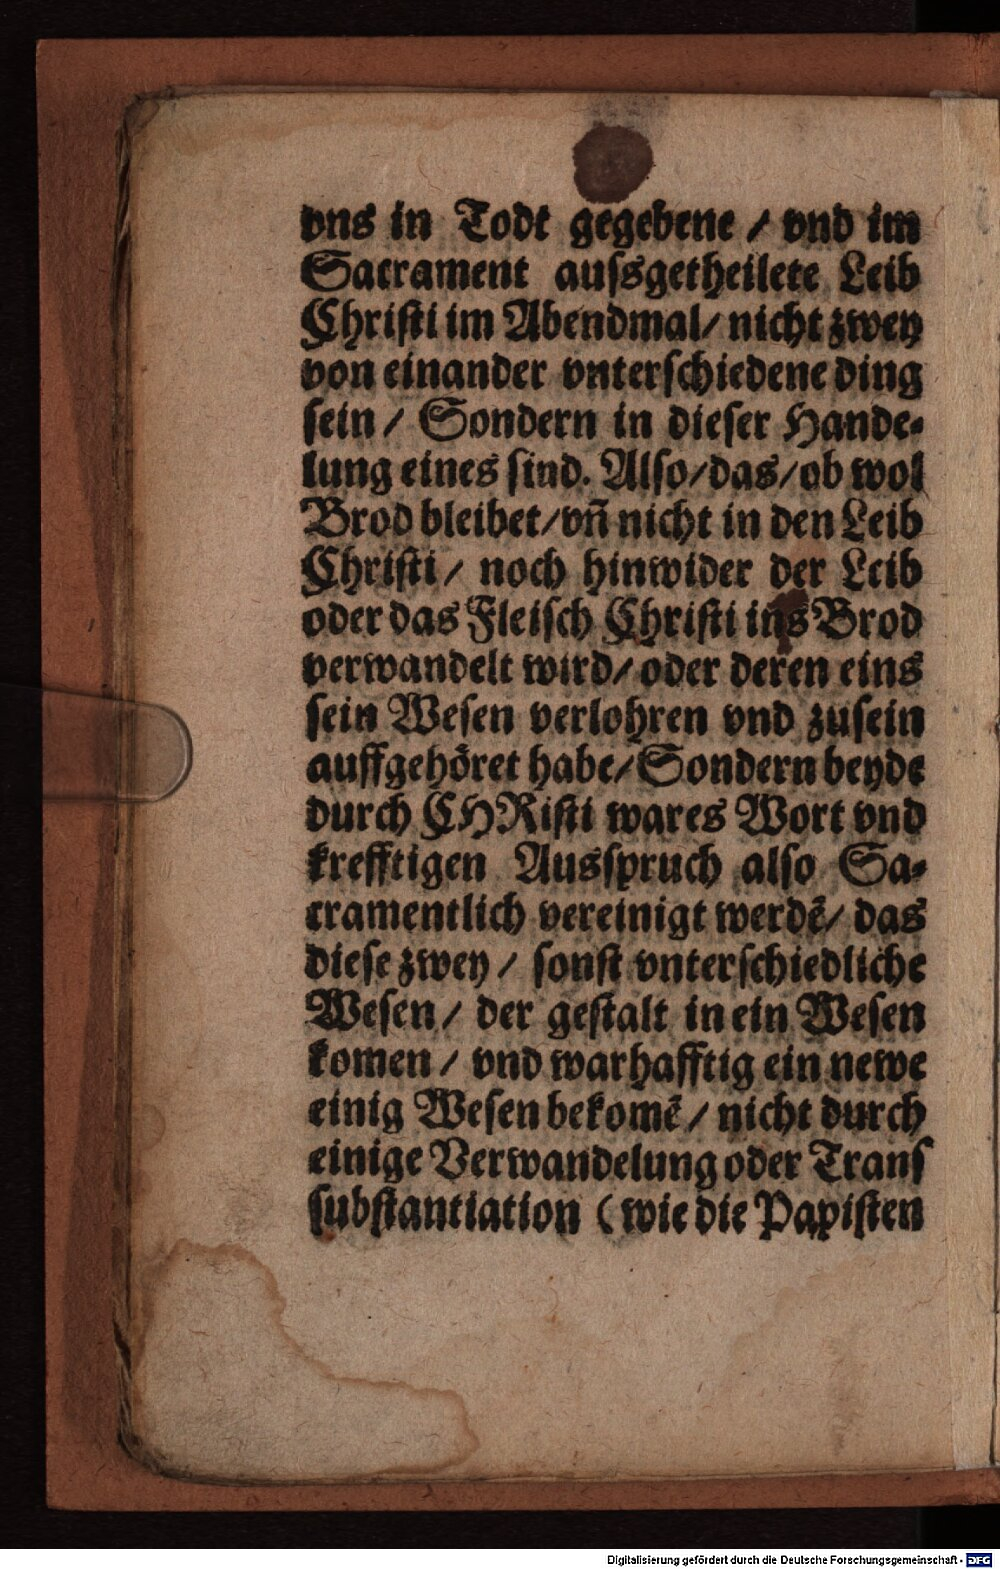 vns in Todt gegebene / vnd im
Sacrament auſsgetheilete Leib
Chriſti im Abendmal/ nicht zwey
von einander vnterſchiedene ding
ſein / Sondern in dieſer Hande⸗
lung eines ſind. Alſo/das/ob wol
Brod bleibet/vn̄ nicht in den Leib
Chriſti / noch hinwider der Leib
oder das Fleiſch Chriſti ins Brod
verwandelt wird/ oder deren eins
ſein Weſen verlohren vnd zuſein
auffgehöret habe/ Sondern beyde
durch CHRiſti wares Wort vnd
krefftigen Ausſpruch alſo Sa⸗
cramentlich vereinigt werdē/ das
dieſe zwey / ſonſt vnterſchiedliche
Weſen / der geſtalt in ein Weſen
komen / vnd warhafftig ein newe
einig Weſen bekomē / nicht durch
einige Verwandelung oder Tranſ
ſubſtantiation ( wie die Papiſten
Digitalisierung gefördert durch die Deutsche Forschungsgemeinschaft - DFG